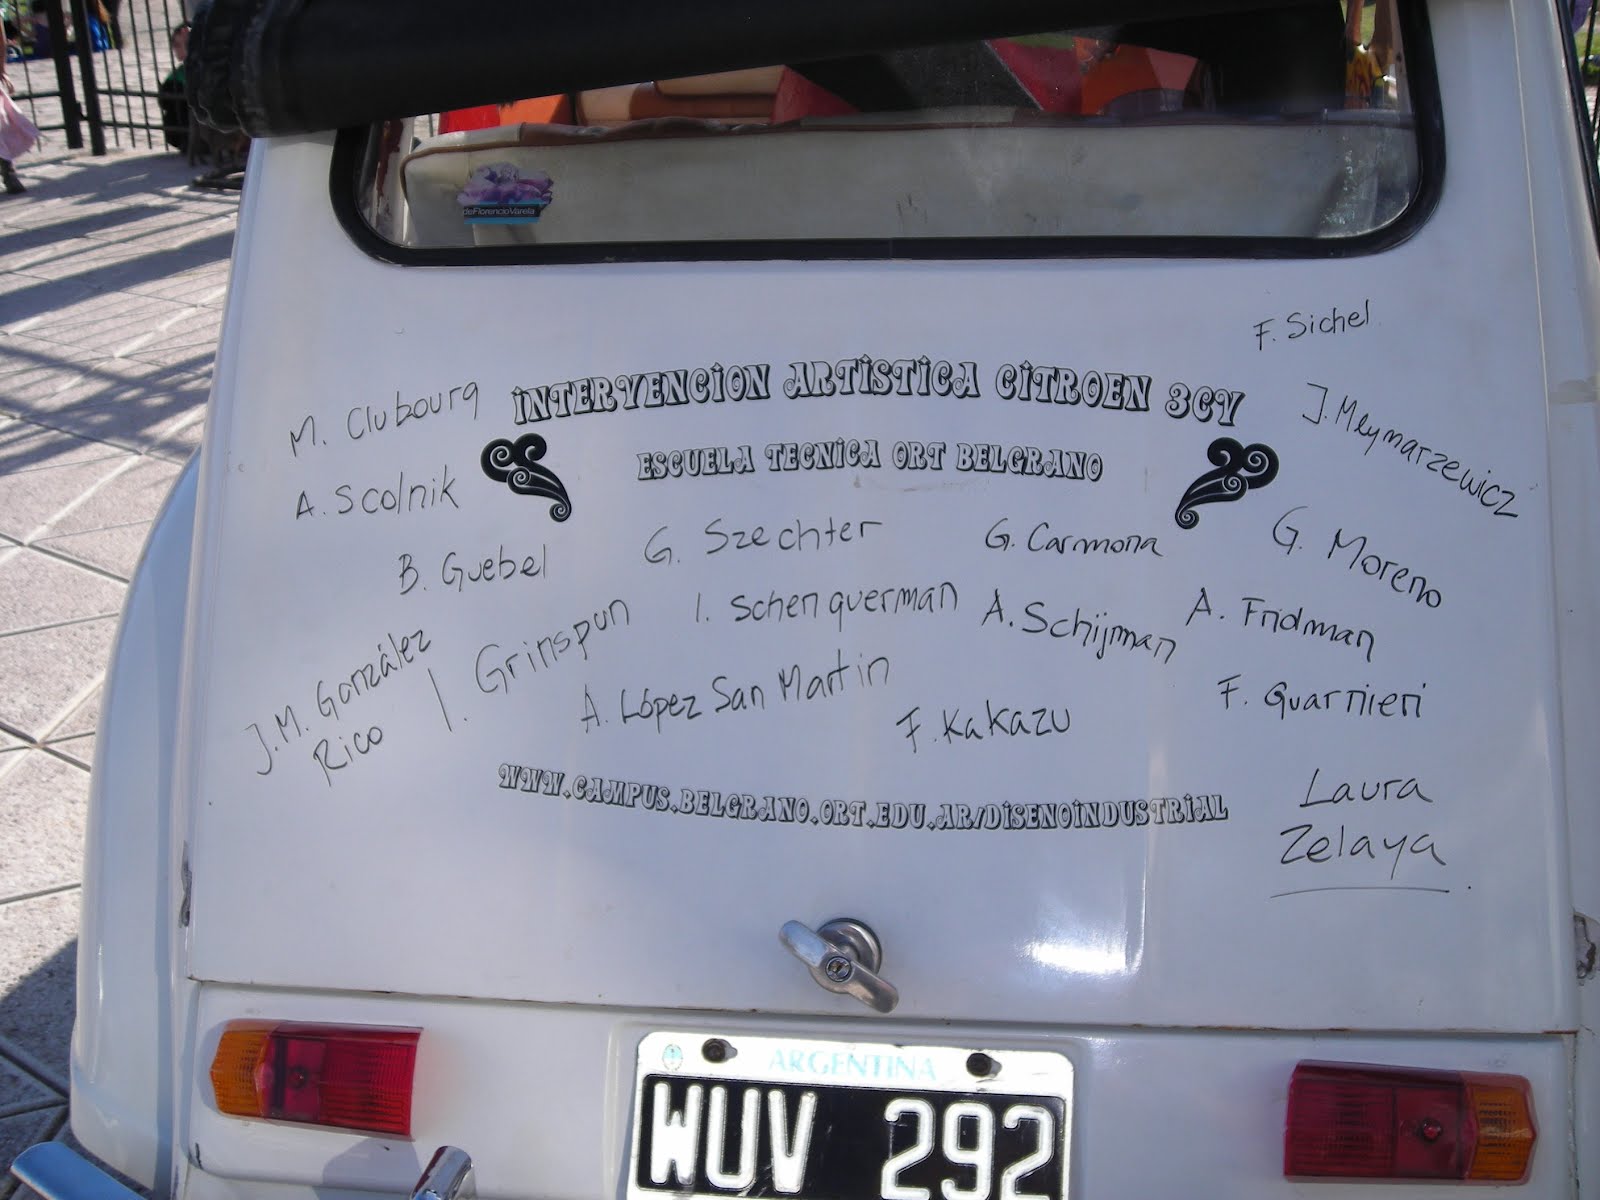 deFlorencioVarela
INTERVENCION ARTISTICA CITROEN 3CV
ESCUELA TECNICA ORT BELGRANO
F. Sichel
M. Clubourg
J. Meymarzewicz
A. Scolnik
G. Szechter
G. Carmona
G. Moreno
B. Guebel
I. Schenquerman
A. Schijman
A. Fridman
J.M. González
Rico
I. Grinspun
A. López San Martin
F. Kakazu
F. Guarnieri
WWW.CAMPUS.BELGRANO.ORT.EDU.AR/DISENOINDUSTRIAL
Laura
Zelaya
ARGENTINA
WUV 292